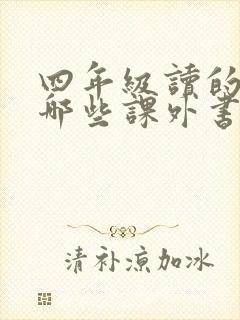 四年級讀的
哪些課外書
清补凉加冰